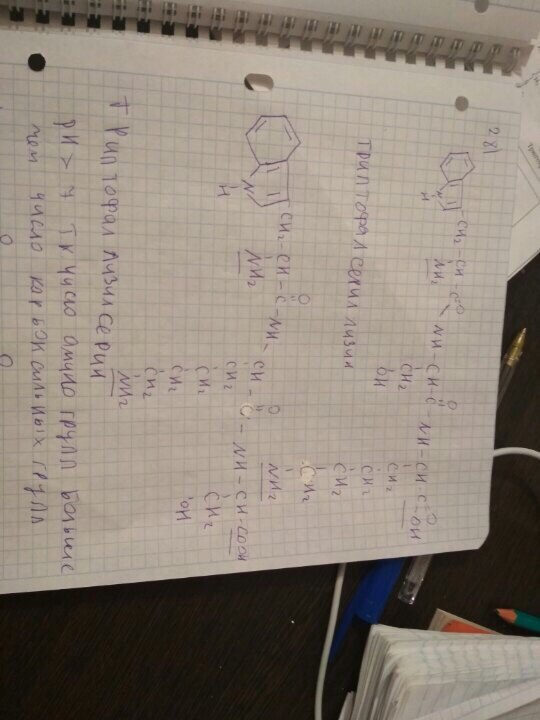 28)
O O O
CH2 - CH - C - NH CH - C - NH - CH - C - OH
N NH2 CH2 CH2
H OH CH2
CH2
CH2
NH2
Триптофалсерил лизин
O O
CH2 - CH - C - NH - CH - C - NH - CH - COOH
N NH2 CH2 CH2
H CH2 OH
CH2
CH2
NH2
Триптофал лизил серин
PH > 7 т к число амино групп больше
чем число карбоксильных групп